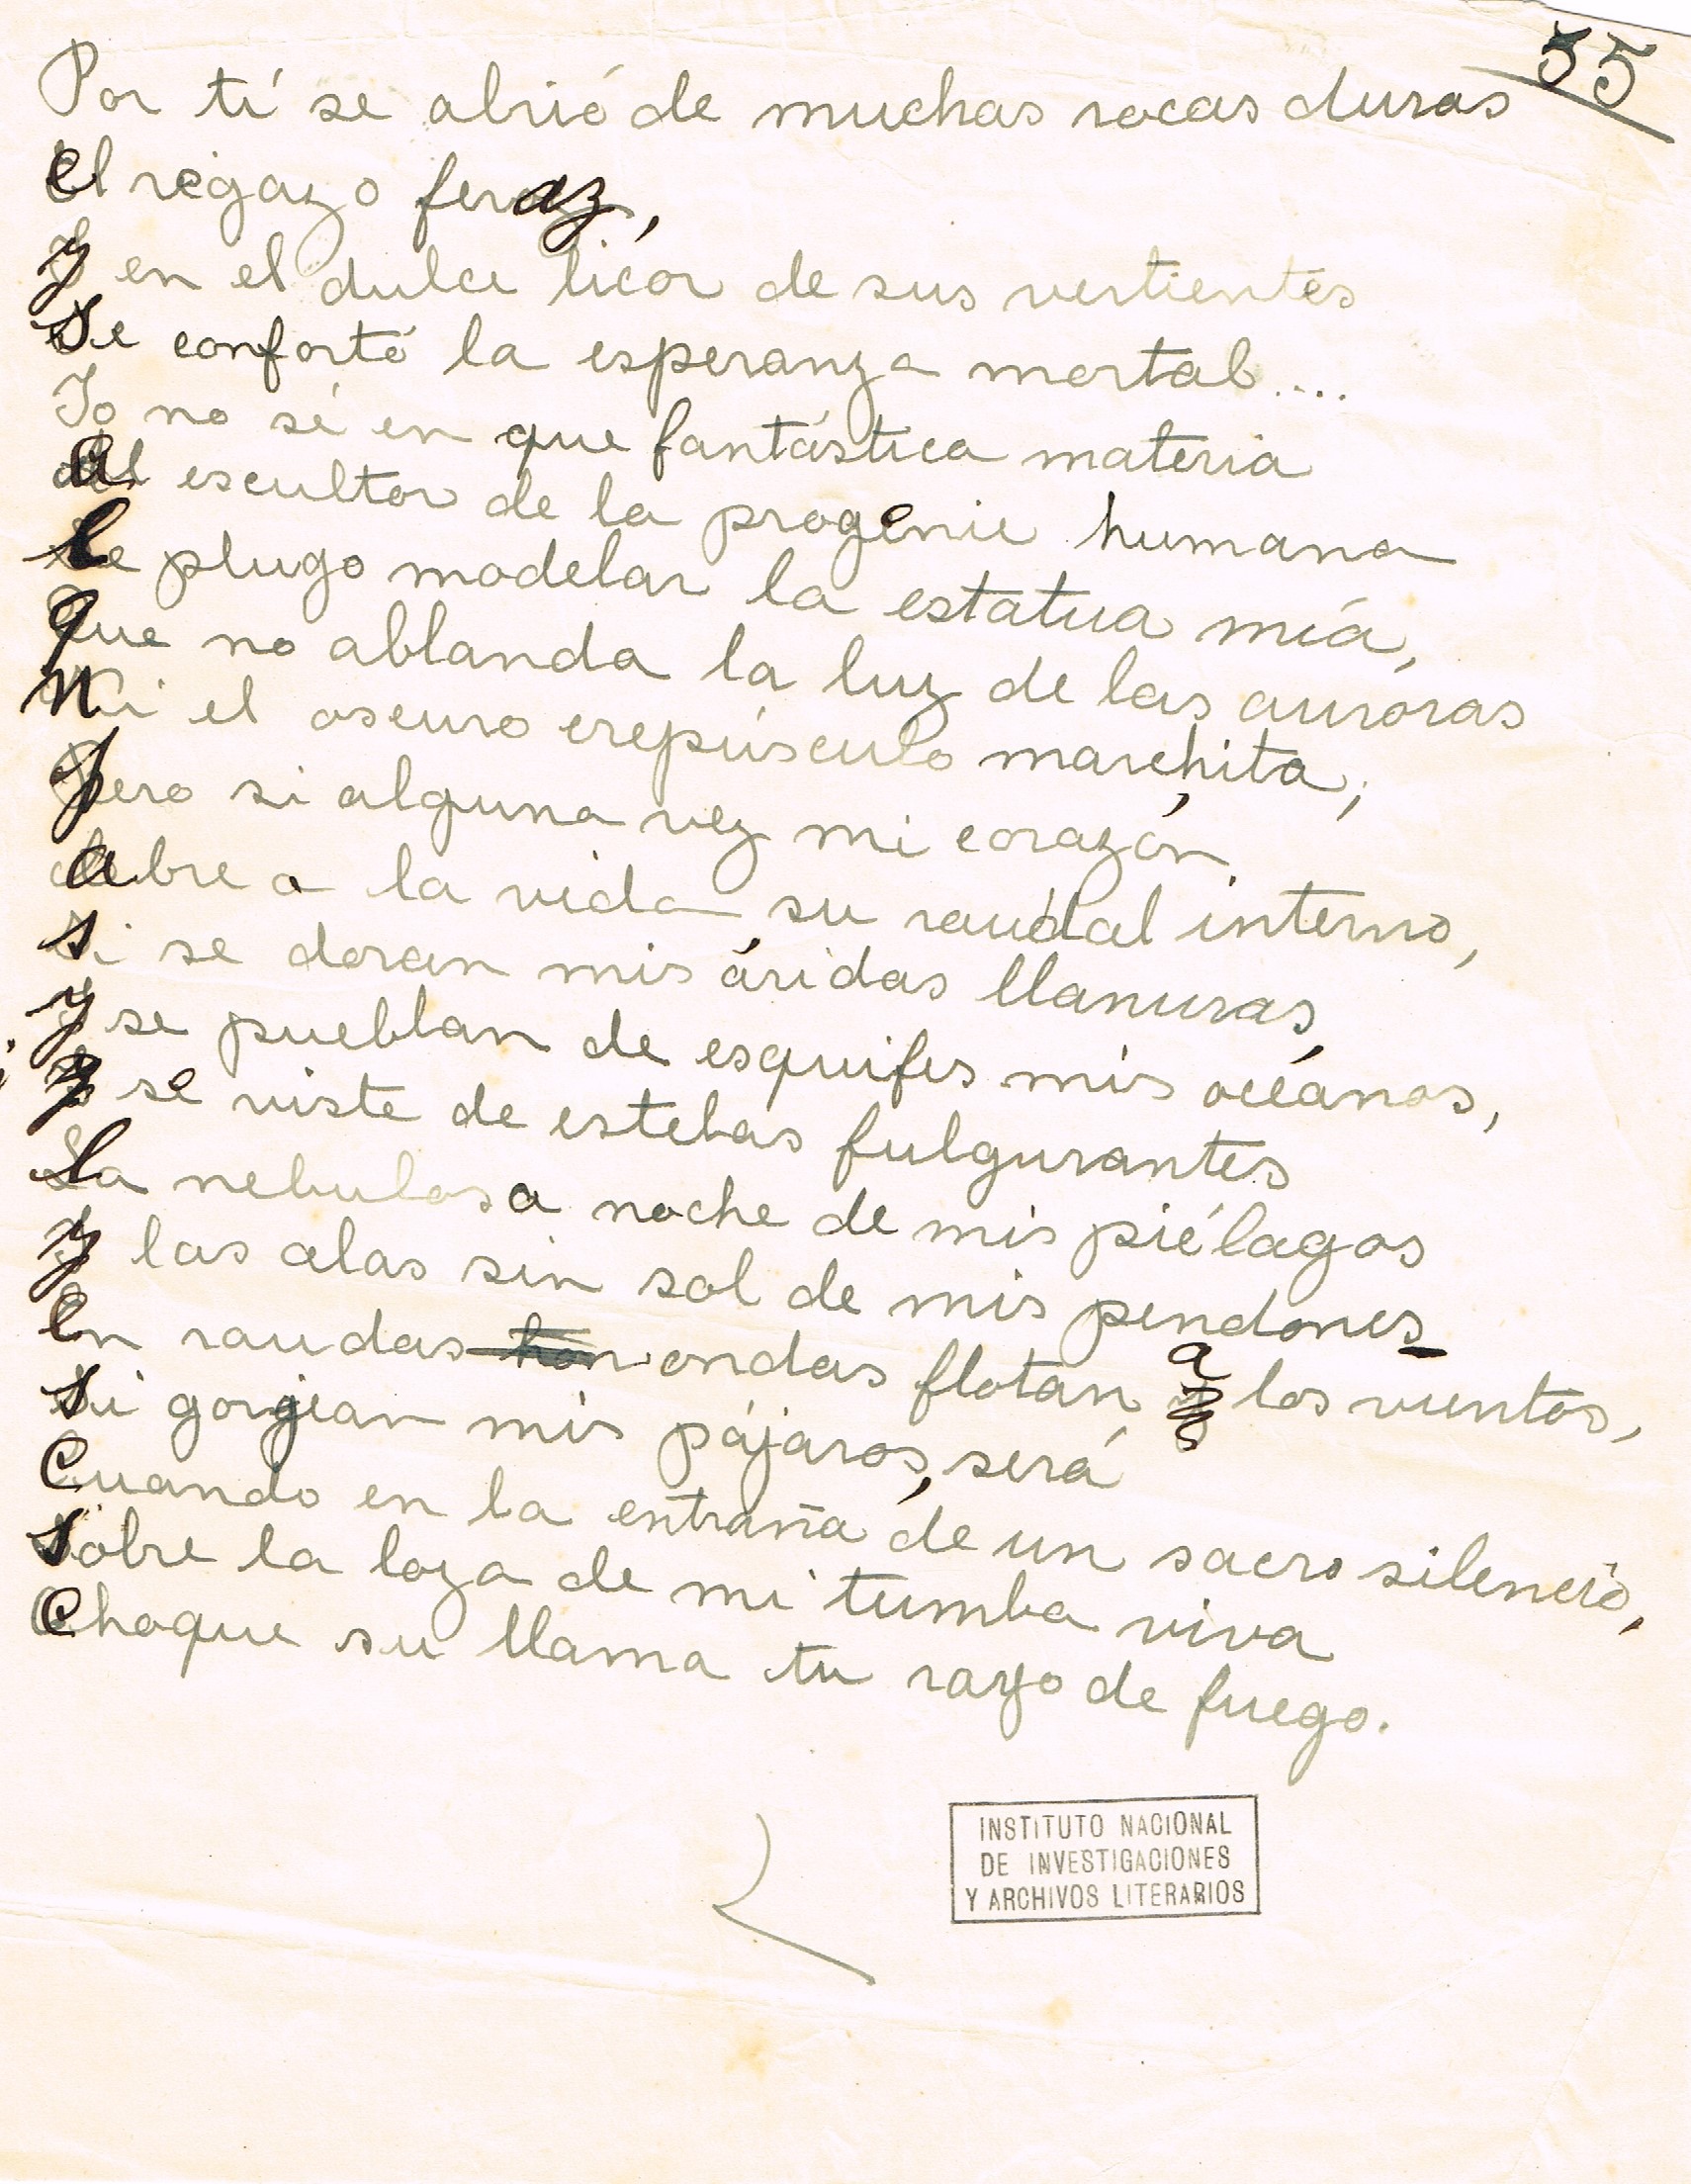 55
Por tí se abrió de muchas rocas duras
el regazo feraz,
y en el dulce licor de sus vertientes
se confortó la esperanza mortal....
Yo no sé en que fantástica materia
al escultor de la progenie humana
le plugo modelar la estatua mía,
que no ablanda la luz de las auroras
ni el oscuro crepúsculo marchita;
pero si alguna vez mi corazón
abre a la vida, su raudal interno,
si se doran mis áridas llanuras,
y se pueblan de esquifes mis océanos,
y se viste de estelas fulgurantes
la nebulosa noche de mis piélagos
y las alas sin sol de mis pendones
en raudas ondas flotan a los vientos,
si gorjean mis pájaros, será
cuando en la entraña de un sacro silencio,
sobre la loza de mi tumba viva
choque su llama tu rayo de fuego.
INSTITUTO NACIONAL
DE INVESTIGACIONES
Y ARCHIVOS LITERARIOS